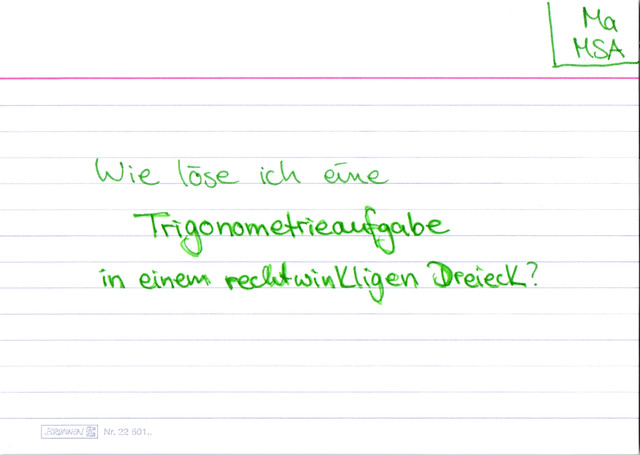 Ma
MSA
Wie löse ich eine
Trigonometrieaufgabe
in einem rechtwinkligen Dreieck?
BRUNNEN Nr. 22 601..